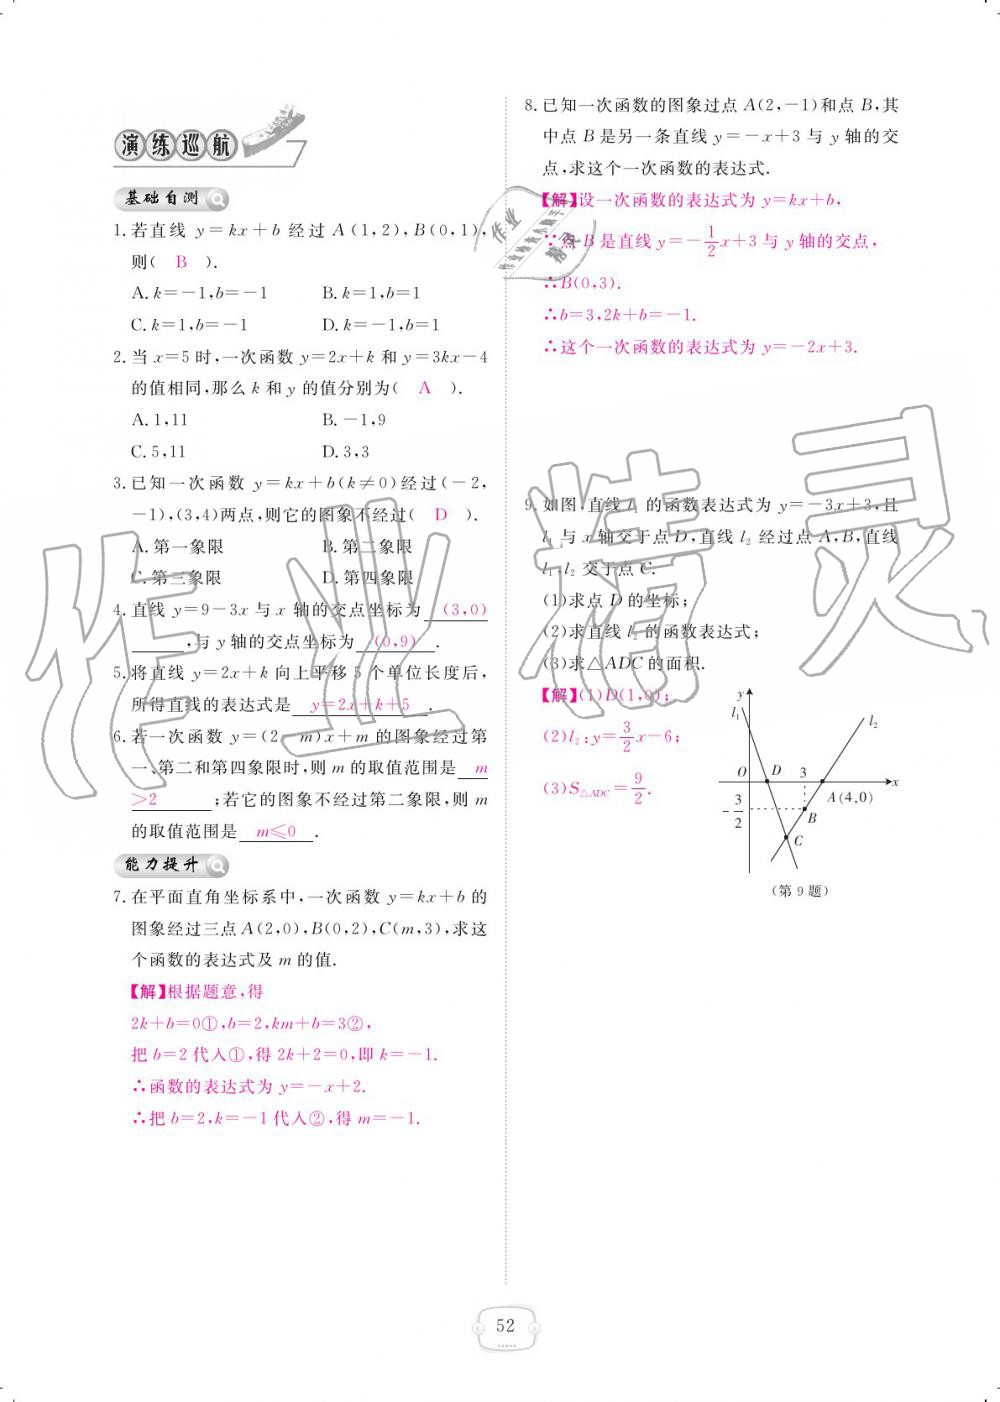 演练巡航
基础自测
1. 若直线 y=kx+b 经过 A(1,2),B(0,1),
则( B ).
A. k=-1,b=-1  B. k=1,b=1
C. k=1,b=-1  D. k=-1,b=1
2. 当 x=5 时,一次函数 y=2x+k 和 y=3kx-4
的值相同,那么 k 和 y 的值分别为( A ).
A. 1,11  B. -1,9
C. 5,11  D. 3,3
3. 已知一次函数 y=kx+b(k≠0)经过(-2,
-1),(3,4)两点,则它的图象不经过( D ).
A. 第一象限  B. 第二象限
C. 第三象限  D. 第四象限
4. 直线 y=9-3x 与 x 轴的交点坐标为 (3,0)
,与 y 轴的交点坐标为 (0,9) .
5. 将直线 y=2x+k 向上平移 5 个单位长度后,
所得直线的表达式是 y=2x+k+5 .
6. 若一次函数 y=(2-m)x+m 的图象经过第
一、第二和第四象限时,则 m 的取值范围是 m
>2 ;若它的图象不经过第二象限,则 m
的取值范围是 m≤0 .
能力提升
7. 在平面直角坐标系中,一次函数 y=kx+b 的
图象经过三点 A(2,0),B(0,2),C(m,3),求这
个函数的表达式及 m 的值.
【解】根据题意,得
2k+b=0①,b=2,km+b=3②,
把 b=2 代入①,得 2k+2=0,即 k=-1.
∴函数的表达式为 y=-x+2.
∴把 b=2,k=-1 代入②,得 m=-1.
8. 已知一次函数的图象过点 A(2,-1)和点 B,其
中点 B 是另一条直线 y=-x+3 与 y 轴的交
点,求这个一次函数的表达式.
【解】设一次函数的表达式为 y=kx+b,
∵点 B 是直线 y=-1/2x+3 与 y 轴的交点,
∴B(0,3).
∴b=3,2k+b=-1.
∴这个一次函数的表达式为 y=-2x+3.
9. 如图,直线 l₁ 的函数表达式为 y=-3x+3,且
l₁ 与 x 轴交于点 D,直线 l₂ 经过点 A,B,直线
l₁,l₂ 交于点 C.
(1)求点 D 的坐标;
(2)求直线 l₂ 的函数表达式;
(3)求△ADC 的面积.
【解】(1)D(1,0);
(2)l₂:y=3/2x-6;
(3)S△ADC=9/2.
y
l₁
l₂
O D 3 x
A(4,0)
-3/2
B
C
(第 9 题)
52
作业精灵